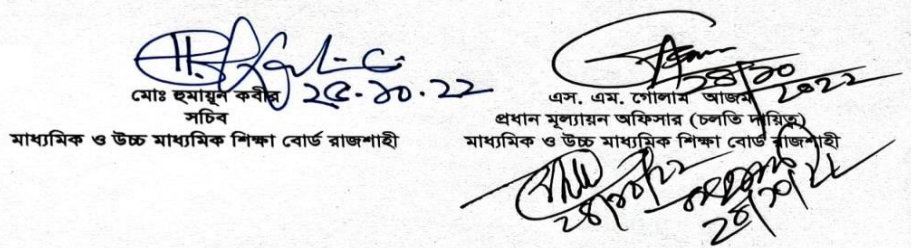 ২৫.১০.২২
মোঃ হুমায়ূন কবীর
সচিব
মাধ্যমিক ও উচ্চ মাধ্যমিক শিক্ষা বোর্ড রাজশাহী
এস. এম. গোলাম আজম
প্রধান মূল্যায়ন অফিসার (চলতি দায়িত্ব)
মাধ্যমিক ও উচ্চ মাধ্যমিক শিক্ষা বোর্ড রাজশাহী